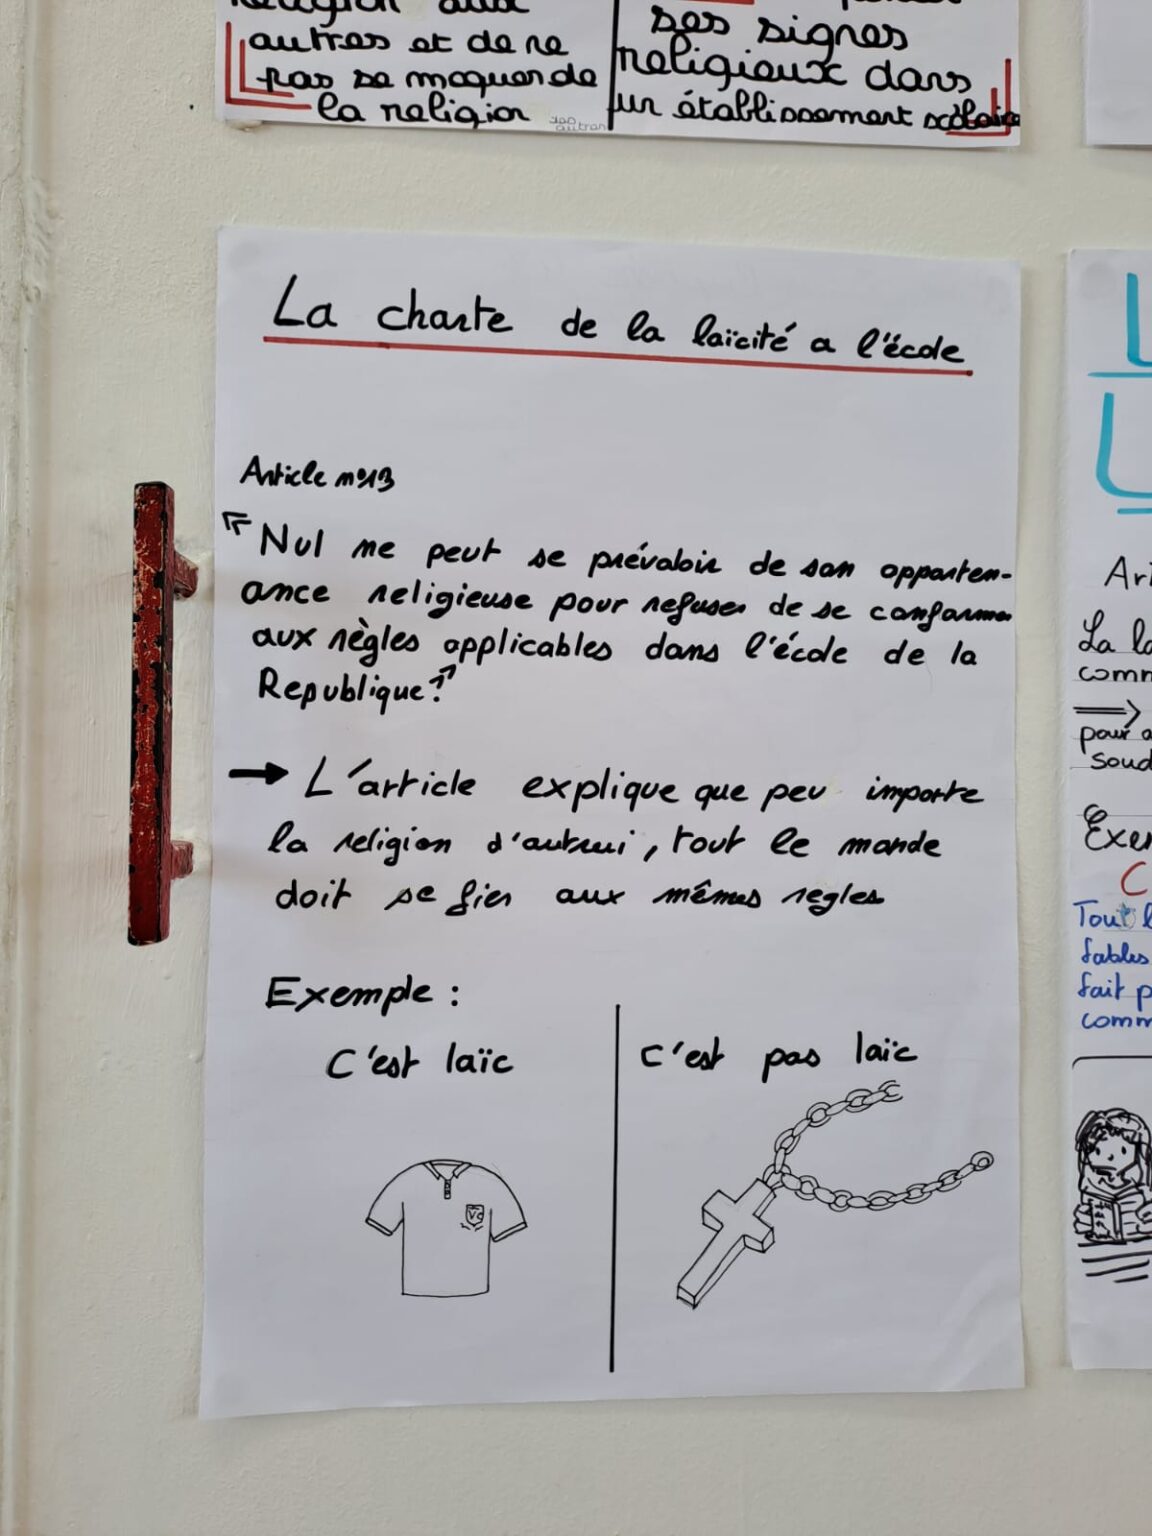 autres et de ne
pas se moquer de
la religion
ses signes
religieux dans
un établissement scolaire
La charte de la laïcité a l'école
Article n°13
"Nul ne peut se prévaloir de son apparten-
ance religieuse pour refuser de se conformer
aux règles applicables dans l'école de la
Republique."
→ L'article explique que peu importe
la religion d'autrui, tout le monde
doit se fier aux mêmes regles
Exemple :
C'est laïc
C'est pas laïc
VC
Exe
Tout l
fables
fait p
comm